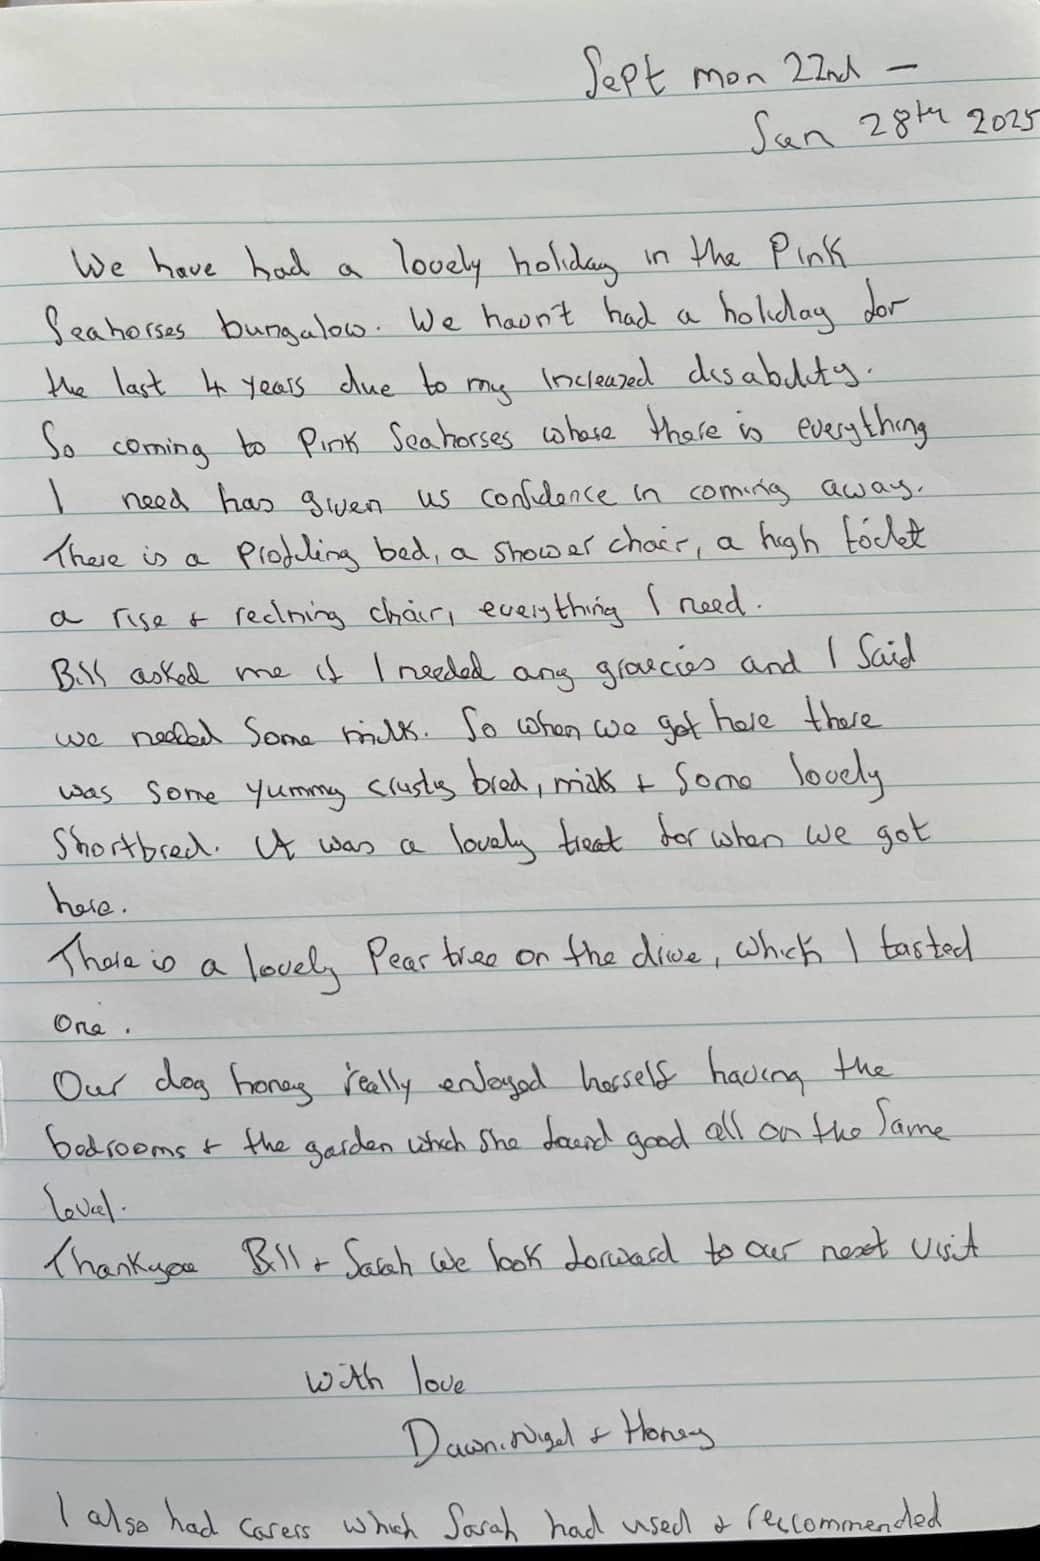 Sept mon 22nd -
Sun 28th 2025
We have had a lovely holiday in the Pink
Seahorses bungalow. We havn't had a holiday for
the last 4 years due to my increazed disability.
So coming to Pink Seahorses where there is everything
I need has given us confidence in coming away.
There is a profiling bed, a shower chair, a high toilet
a rise + reclining chair, everything I need.
Bill asked me if I needed any groucies and I said
we needed some milk. So when we got here there
was some yummy crusty bred, milk + some lovely
shortbred. It was a lovely treat for when we got
here.
There is a lovely Pear tree on the drive, which I tasted
one.
Our dog honey really enjoyed herself having the
bedrooms + the garden which she found good all on the same
level.
Thankyou Bill + Sarah We look forward to our next visit
with love
Dawn, Nigel + Honey
I also had carers which Sarah had used + reccommended